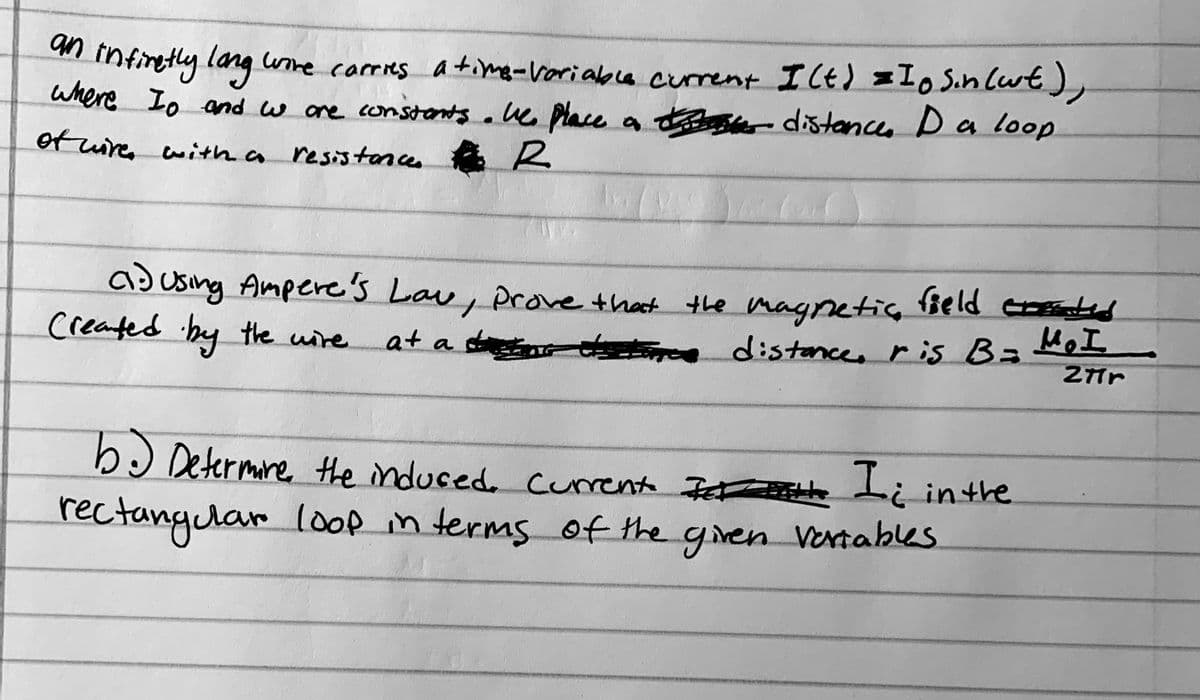 an infinetly long wire carries a time-variable current I(t) = I₀ Sin(wt),
where I₀ and w are constants. We place a distance D a loop
of wire with a resistance R
a.) Using Ampere's Law, prove that the magnetic field
Created by the wire at a distance r is B = M₀I / 2πr
b.) Determine the induced current Iᵢ in the
rectangular loop in terms of the given variables